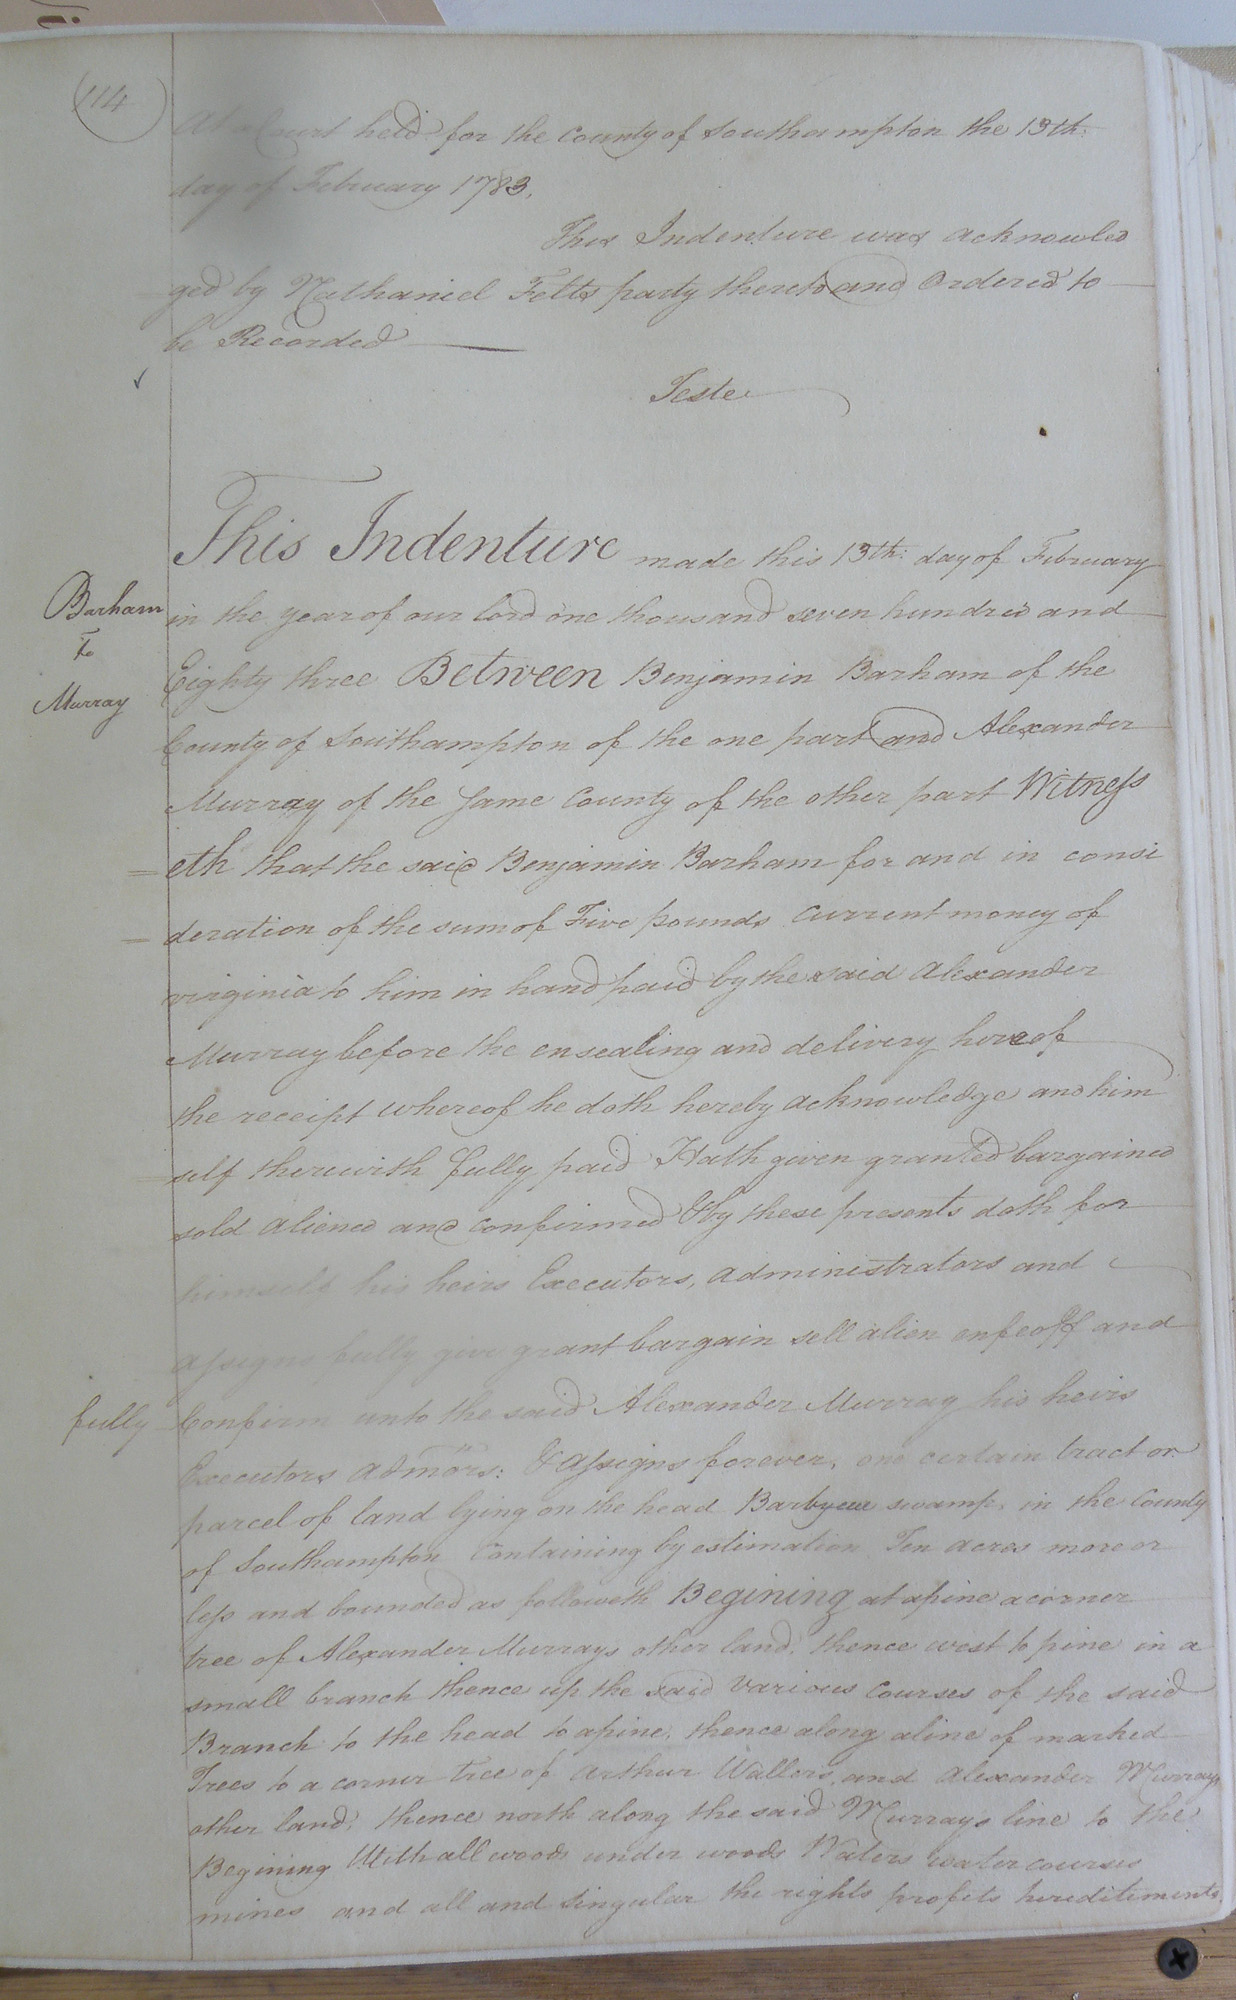 114
At a Court held for the County of Southampton the 13th:
day of February 1783.
This Indenture was acknowled
ged by Nathaniel Felts party thereto and Ordered to
be Recorded
Teste
This Indenture made this 13th: day of February
Barham
To
Murray
in the year of our Lord one thousand seven hundred and
Eighty three Between Benjamin Barham of the
County of Southampton of the one part and Alexander
Murray of the Same County of the other part Witness
eth that the said Benjamin Barham for and in consi
deration of the sum of Five pounds Current money of
virginia to him in hand paid by the said Alexander
Murray before the ensealing and delivery hereof
the receipt whereof he doth hereby acknowledge and him
self therewith fully paid Hath given granted bargained
sold aliened and confirmed & by these presents doth for
himself his heirs Executors, administrators and
assigns fully give grant bargain sell alien enfeoff and
fully
Confirm unto the said Alexander Murray his heirs
Executors admors: & assigns forever, one certain tract or
parcel of land lying on the head Barbycue swamp, in the County
of Southampton Containing by estimation Ten acres more or
less and bounded as followeth Begining at a pine a corner
tree of Alexander Murrays other land, thence west to pine in a
small branch thence up the said various courses of the said
Branch to the head to a pine, thence along a line of marked
Trees to a corner tree of Arthur Wallers, and Alexander Murrays
other land, thence north along the said Murrays line to the
Begining With all woods under woods Waters water courses
mines and all and singular the rights profits hereditiments